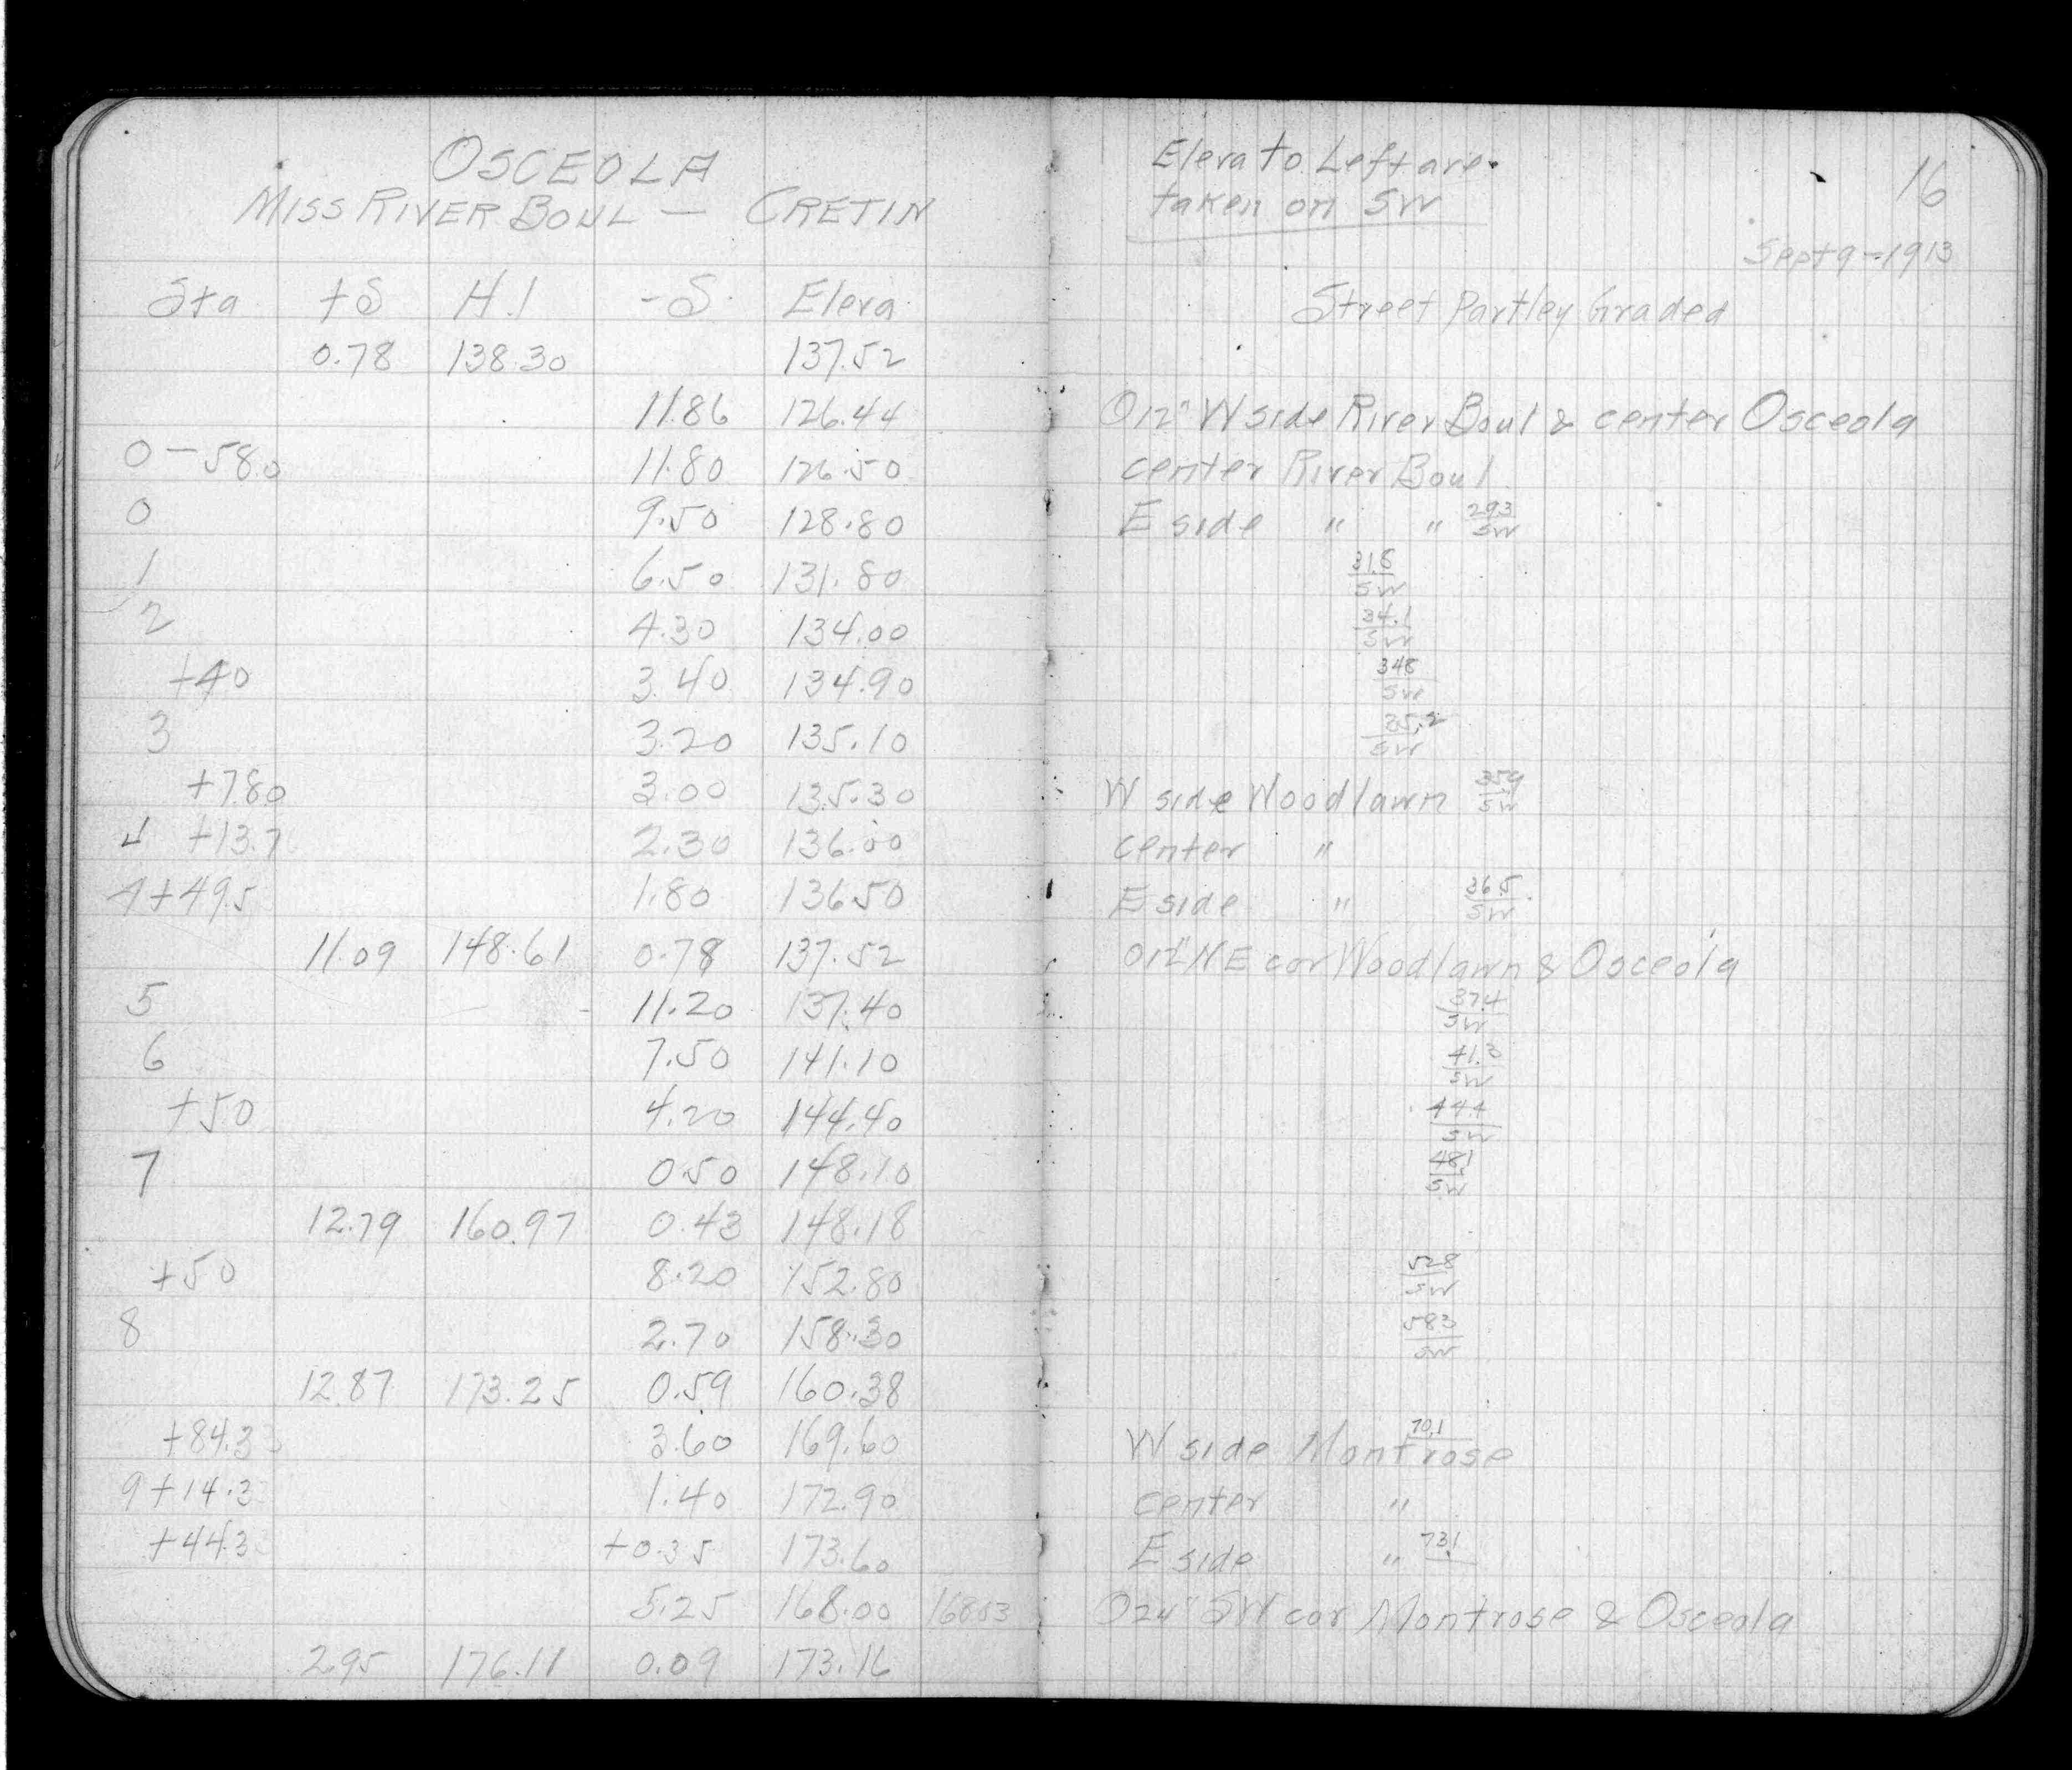 OSCEOLA
MISS RIVER BOUL — CRETIN
Sta +S H.I -S Eleva
0.78 138.30 137.52
11.86 126.44
0-58.0 11.80 126.50
0 9.50 128.80
1 6.50 131.80
2 4.30 134.00
+40 3.40 134.90
3 3.20 135.10
+78.0 3.00 135.30
4 +13.7 2.30 136.00
4+49.5 1.80 136.50
11.09 148.61 0.78 137.52
5 11.20 137.40
6 7.50 141.10
+50 4.20 144.40
7 0.50 148.10
12.79 160.97 0.43 148.18
+50 8.20 152.80
8 2.70 158.30
12.87 173.25 0.59 160.38
+84.3 3.60 169.60
9+14.3 1.40 172.90
+44.3 +0.35 173.60
5.25 168.00 168.03
2.95 176.11 0.09 173.16
Eleva to Left are
taken on SW
16
Sept 9-1913
Street Partley Graded
O12" W side River Boul & center Osceola
center River Boul
E side " " 29.3
SW
31.8
SW
34.1
SW
34.8
SW
35.2
SW
W side Woodlawn 35.9
SW
center "
E side " 36.5
SW
O12" NE cor Woodlawn & Osceola
37.4
SW
41.3
SW
44.4
SW
48.1
SW
52.8
SW
58.3
SW
W side Montrose 70.1
center "
E side " 73.1
O24" SW cor Montrose & Osceola